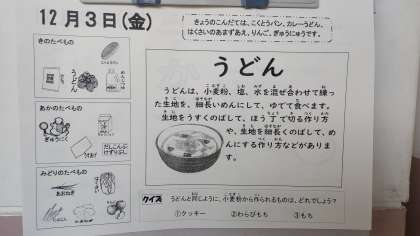 12月3日(金)
きょうのこんだては、こくとうパン、カレーうどん、
はくさいのあまずあえ、りんご、ぎゅうにゅうです。
きのたべもの
うどん
あかのたべもの
ぎゅうにく
だしこんぶ
けずりぶし
みどりのたべもの
あおねぎ
うどん
うどんは、小麦粉、塩、水を混ぜ合わせて練っ
た生地を、細長いめんにして、ゆでて食べます。
生地をうすくのばして、ほう丁で切る作り方
や、生地を細長くのばして、め
んにする作り方などがありま
す。
クイズ
うどんと同じように、小麦粉から作られるものは、どれでしょう?
①クッキー ②わらびもち ③もち